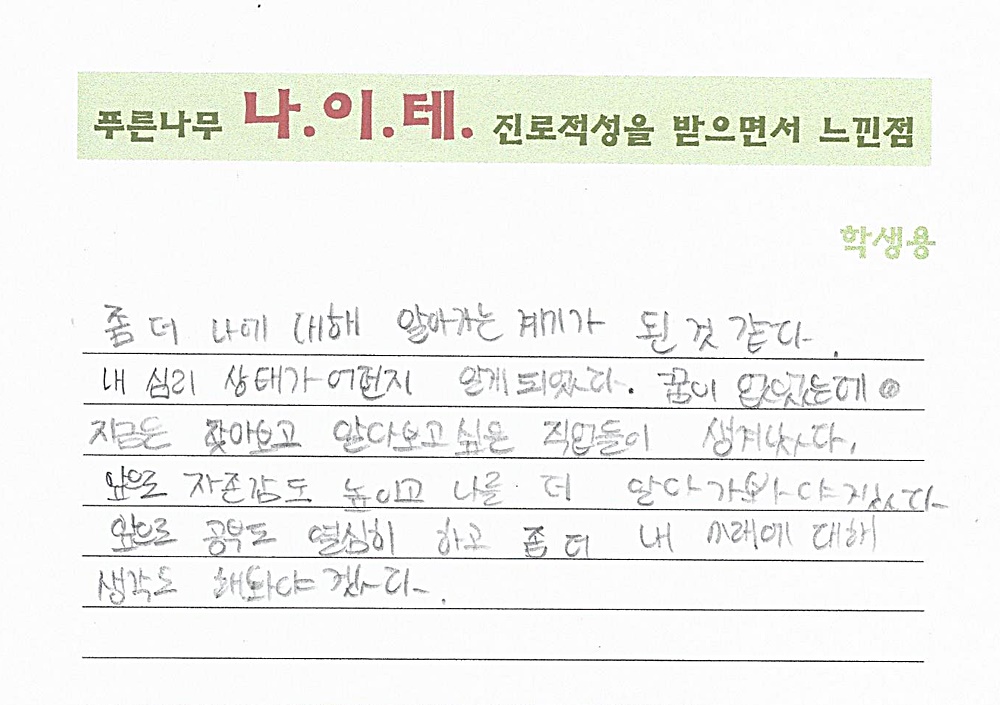 푸른나무 나.이.테. 진로적성을 받으면서 느낀점
학생용
좀 더 나에 대해 알아가는 계기가 된 것 같다.
내 심리 상태가 어떤지 알게되었다. 꿈이 없었는데
지금은 찾아보고 알다보고싶은 직업들이 생겨났다.
앞으로 자존감도 높이고 나를 더 알다가봐야겠다
앞으로 공부도 열심히 하고 좀 더 내 미래에 대해
생각도 해봐야겠다.